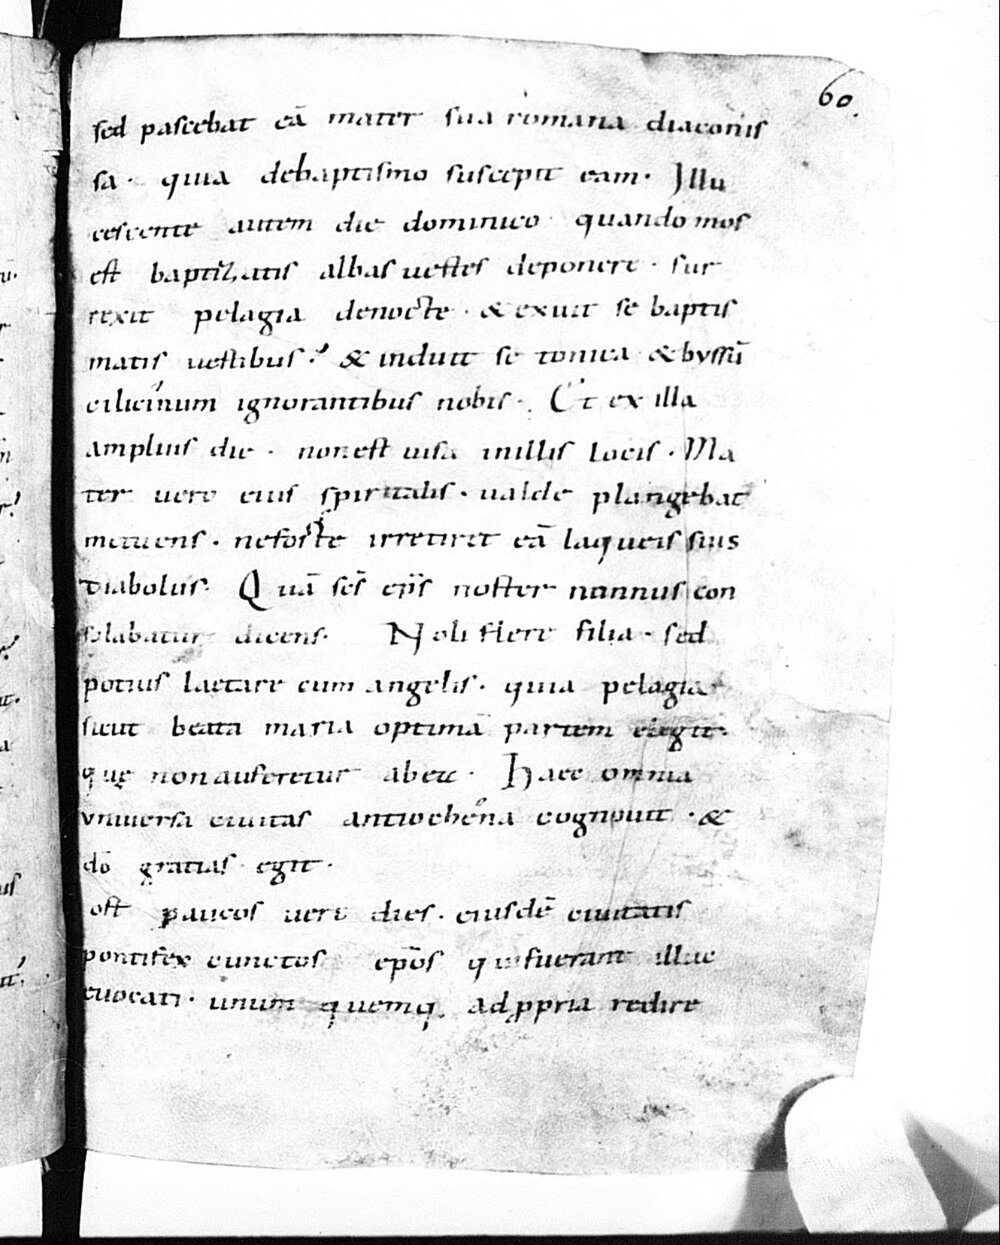 60.
sed pascebat eā mater sua romana diaconis
sa. quia debaptismo suscepit eam. Illu
cescente autem die dominico quando mos
est baptizatis albas uestes deponere. sur
rexit pelagia denocte. & exuit se baptis
matis uestibus. & induit se tonica & byssū
cilicinum ignorantibus nobis. Et ex illa
amplius die. nonest uisa inillis locis. Ma
ter uero eius spiritalis. ualde plangebat
metuens. neforte irretiret eā laqueis suis
diabolus. Quā scs̄ ep̄s noster nunnus con
solabatur dicens. Noli flere filia. sed
potius laetare cum angelis. quia pelagia
sicut beata maria optimā partem elegit.
quę nonauferetur abea. Haec omnia
uniuersa ciuitas antiochena cognouit. &
dō gratias egit.
ost paucos uero dies. eiusdē ciuitatis
pontifex cunctos ep̄os qui fuerant illuc
euocati. unum quemq; adp̱pria redire